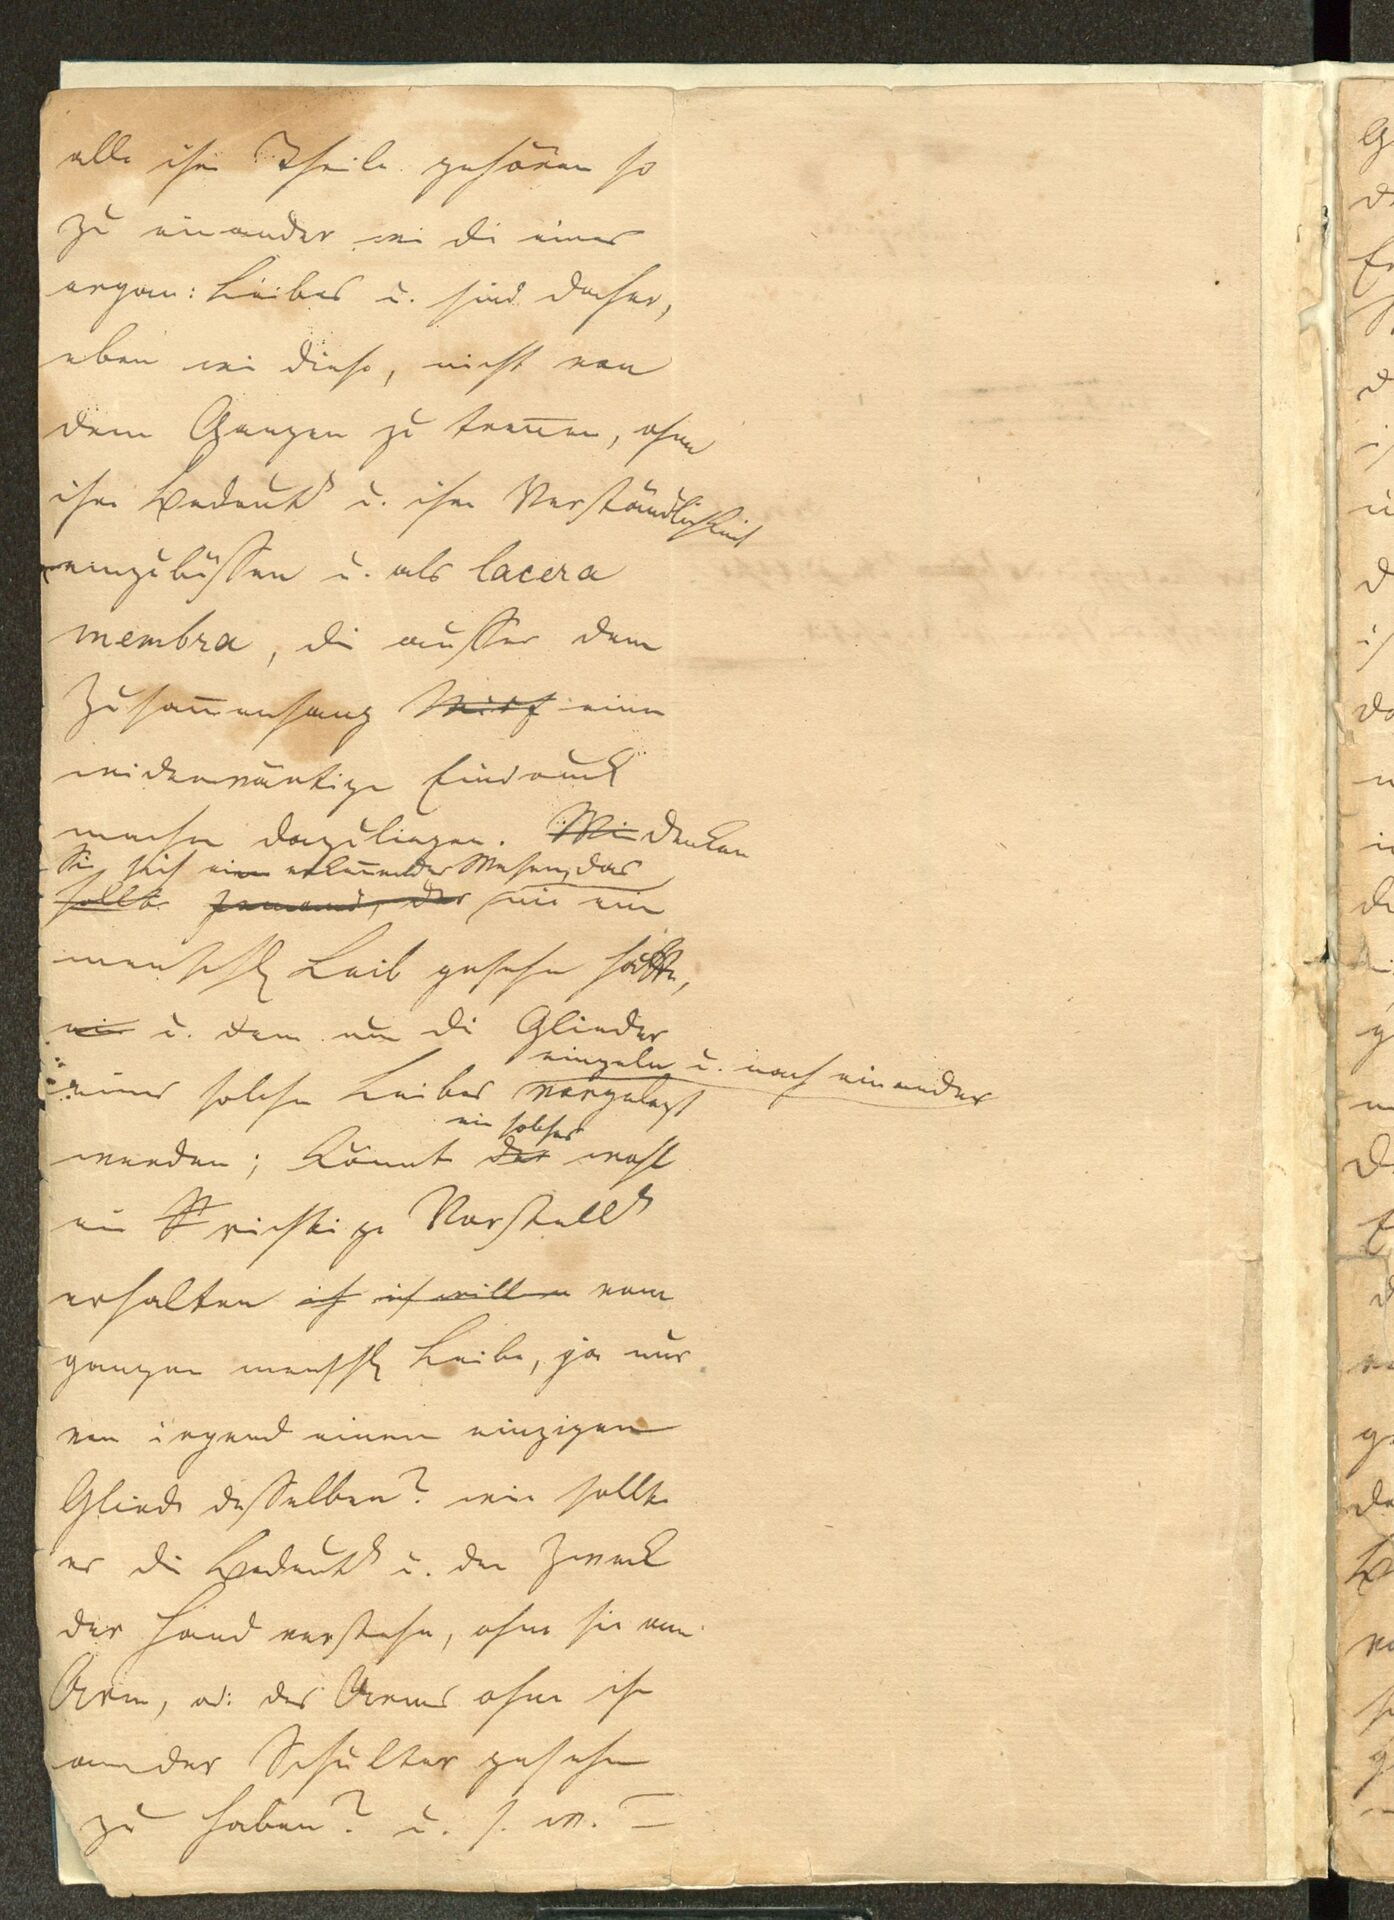 alle ihre Theile gehören so
zu einander wie die eines
organ: Leibes u. sind daher,
eben wie diese, nicht von
dem Ganzen zu treñen, ohne
ihre Bedeutg u. ihre Verständlichkeit
einzubüßen u. als lacera
membra, die außer dem
Zusam̃enhang einen
widerwärtigen Eindruck
machen dazuliegen. Wie denken
Sie sich ein erkeñendes Wesen, das
sollte jemand, der nie ein
menschl Leib gesehn hätte,
wie u. dem nun die Glieder
einzeln u. nach einander
eines solchen Leibes vorgelegt
ein solches
werden; könnte der wohl
eine richtige Vorstellg
erhalten ich ich will vom
ganzen menschl Leibe, ja nur
von irgend einem einzigen
Gliede desselben? wie sollte
er die Bedeutg u. den Zweck
der Hand verstehn, ohne sie am
Arm, od: des Arms ohne ihn
an der Schulter gesehn
zu haben? u. s. w. —